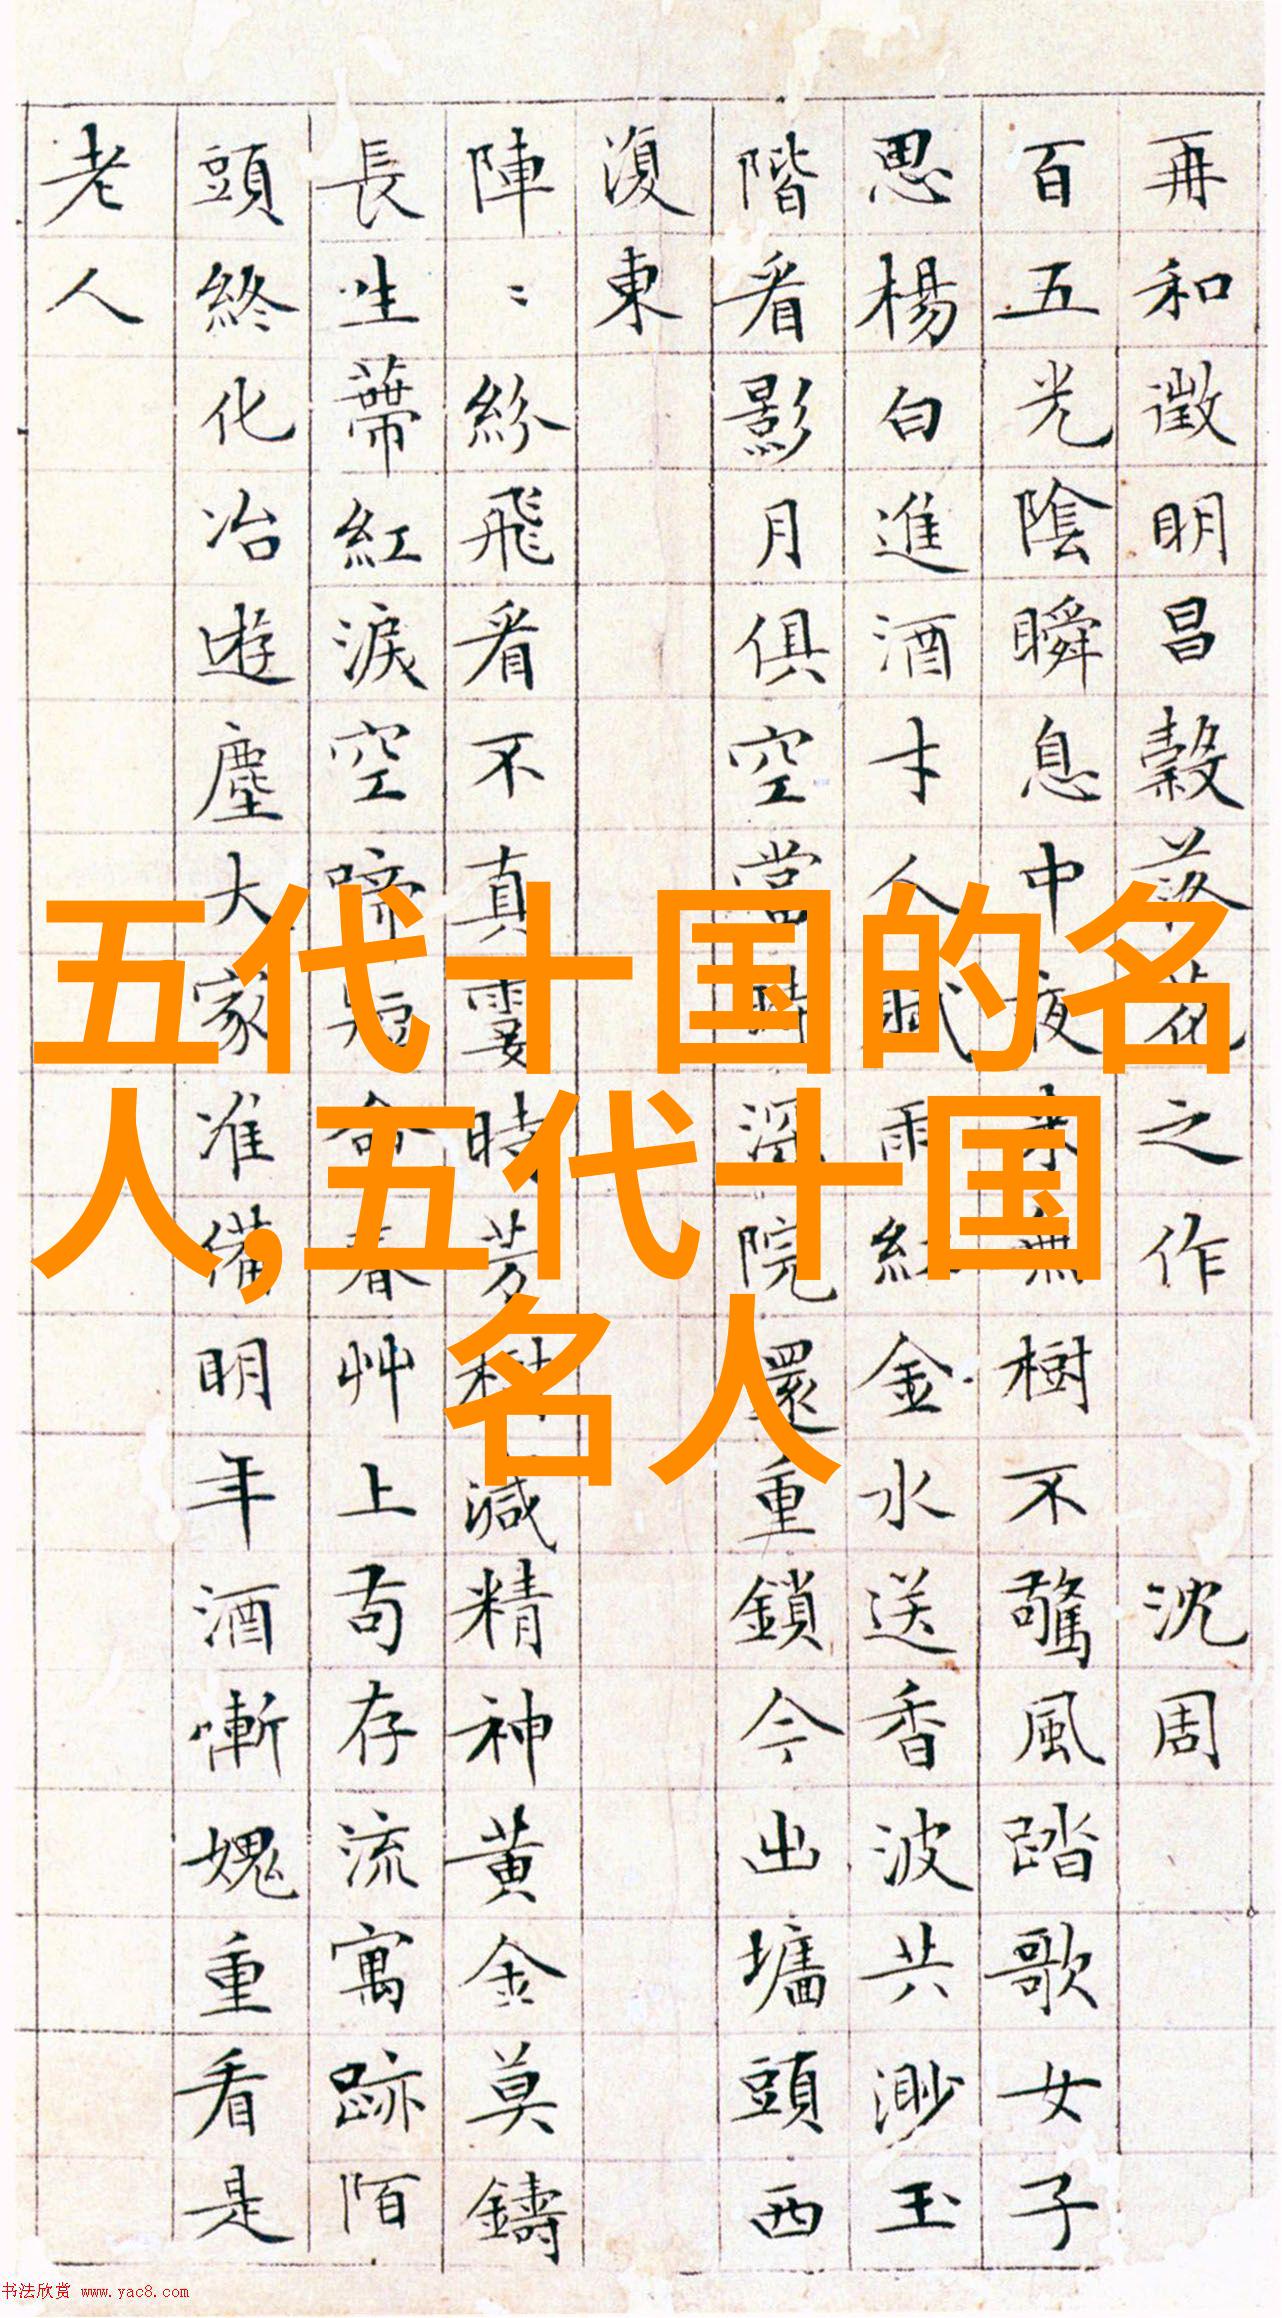 再和徵明昌穀落花之作 沈周
百五光陰瞬息中夜來無樹不驚風踏歌女子
思楊白進酒才人賦雨紅金水送香波共渺玉
階看影月俱空當時深院還重鎖今出墻頭西
復東
陣〻紛飛看不真霎時芳樹減精神黃金莫鑄
長生蔕紅淚空啼短命春艸上苟存流寓跡陌
頭終化冶遊塵大家准備明年酒慚愧重看是
老人
五代十国的名
人,五代十国
名人
书法欣赏 www.yac8.com